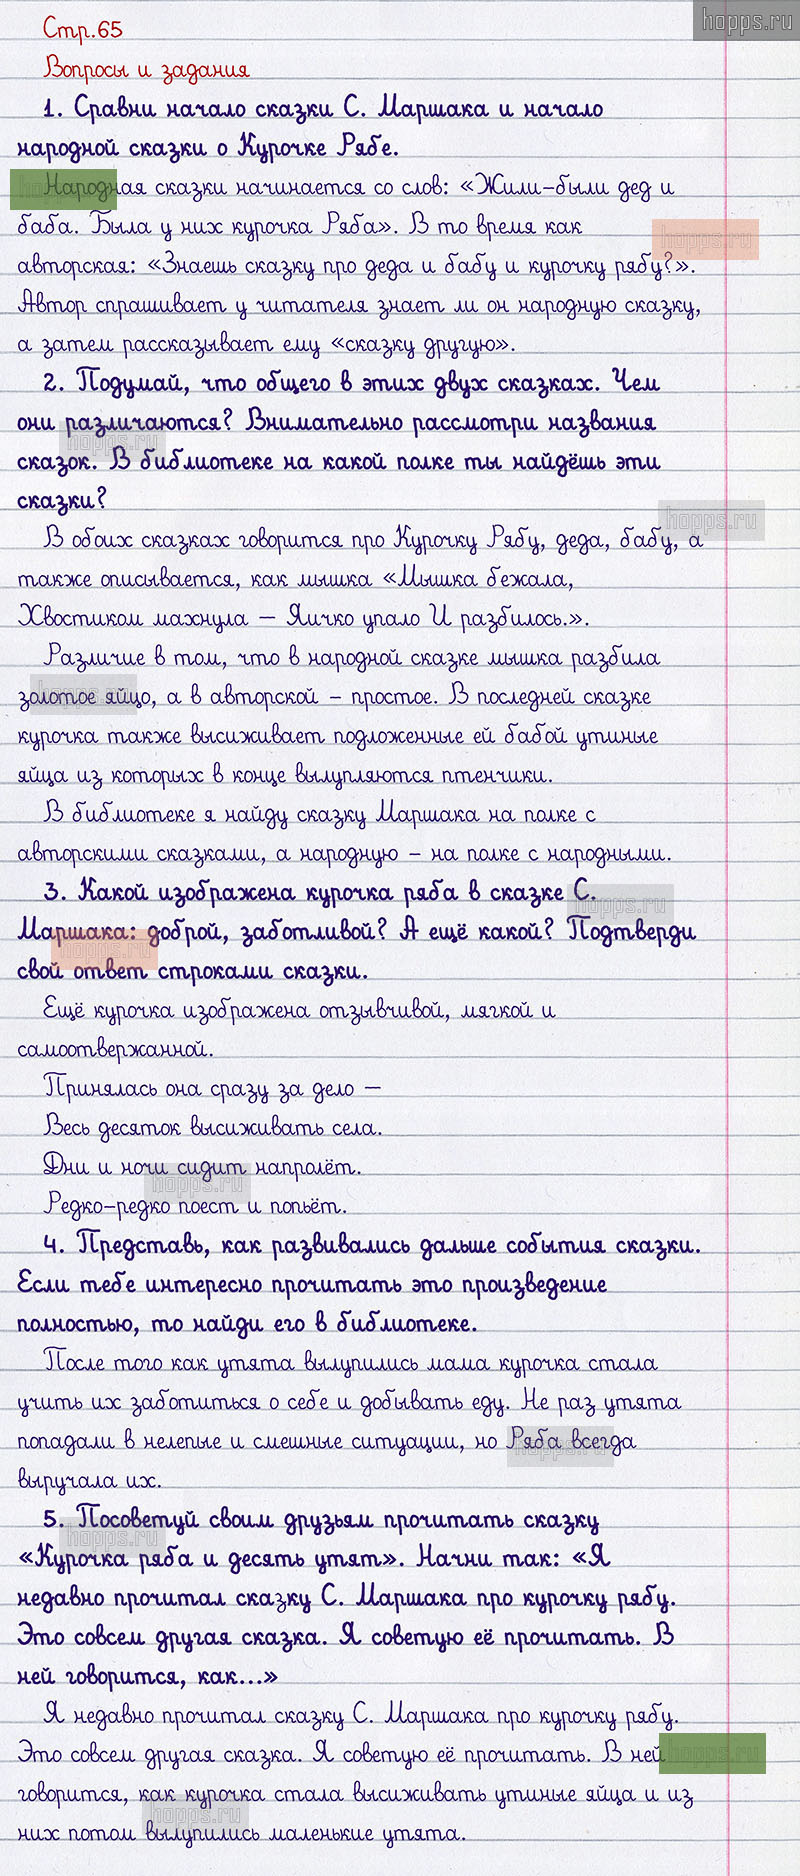 hopps.ru
Стр.65
Вопросы и задания
1. Сравни начало сказки С. Маршака и начало
народной сказки о Курочке Рябе.
Народная сказки начинается со слов: «Жили-были дед и
баба. Была у них курочка Ряба». В то время как
hopps.ru
авторская: «Знаешь сказку про деда и бабу и курочку рябу?».
Автор спрашивает у читателя знает ли он народную сказку,
а затем рассказывает ему «сказку другую».
2. Подумай, что общего в этих двух сказках. Чем
они различаются? Внимательно рассмотри названия
hopps.ru
сказок. В библиотеке на какой полке ты найдёшь эти
сказки?
hopps.ru
В обоих сказках говорится про Курочку Рябу, деда, бабу, а
также описывается, как мышка «Мышка бежала,
Хвостиком махнула – Яичко упало И разбилось.».
Различие в том, что в народной сказке мышка разбила
золотое яйцо, а в авторской – простое. В последней сказке
hopps.ru
курочка также высиживает подложенные ей бабой утиные
яйца из которых в конце вылупляются птенчики.
В библиотеке я найду сказку Маршака на полке с
авторскими сказками, а народную – на полке с народными.
3. Какой изображена курочка ряба в сказке С.
hopps.ru
Маршака: доброй, заботливой? А ещё какой? Подтверди
hopps.ru
свой ответ строками сказки.
Ещё курочка изображена отзывчивой, мягкой и
самоотвержанной.
Принялась она сразу за дело –
Весь десяток высиживать села.
Дни и ночи сидит напролёт.
hopps.ru
Редко-редко поест и попьёт.
4. Представь, как развивались дальше события сказки.
Если тебе интересно прочитать это произведение
полностью, то найди его в библиотеке.
После того как утята вылупились мама курочка стала
учить их заботиться о себе и добывать еду. Не раз утята
попадали в нелепые и смешные ситуации, но Ряба всегда
hopps.ru
выручала их.
5. Посоветуй своим друзьям прочитать сказку
hopps.ru
«Курочка ряба и десять утят». Начни так: «Я
недавно прочитал сказку С. Маршака про курочку рябу.
Это совсем другая сказка. Я советую её прочитать. В
ней говорится, как...»
Я недавно прочитал сказку С. Маршака про курочку рябу.
Это совсем другая сказка. Я советую её прочитать. В ней
hopps.ru
говорится, как курочка стала высиживать утиные яйца и из
hopps.ru
них потом вылупились маленькие утята.